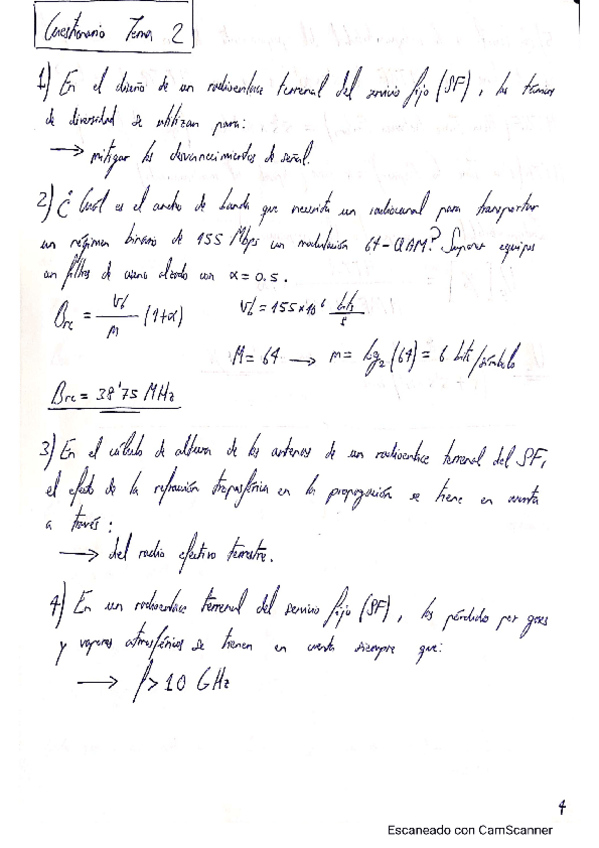 Cuestionario Tema 2
1) En el diseño de un radioenlace terrenal del servicio fijo (SF), las técnicas
de diversidad se utilizan para:
→ mitigar los desvanecimientos de señal.
2) ¿Cuál es el ancho de banda que necesita un radiocanal para transportar
un régimen binario de 155 Mbps con modulación 64-QAM? Suponer equipos
con filtros de coseno alzado con α = 0.5.
Brc = Vb/m (1+α) Vb = 155×10⁶ bits/s
M = 64 → m = log₂(64) = 6 bits/símbolo
Brc = 38'75 MHz
3) En el cálculo de altura de las antenas de un radioenlace terrenal del SF,
el efecto de la refracción troposférica en la propagación se tiene en cuenta
a través:
→ del radio efectivo terrestre.
4) En un radioenlace terrenal del servicio fijo (SF), las pérdidas por gases
y vapores atmosféricos se tienen en cuenta siempre que:
→ f > 10 GHz
4
Escaneado con CamScanner